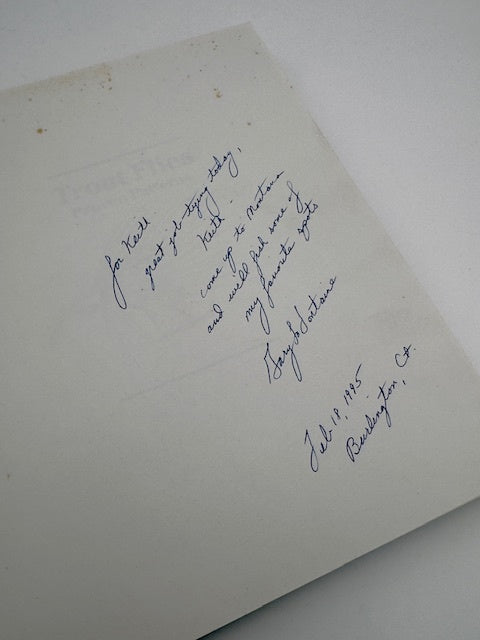 Trout Flies
for Keith
great job tying today,
Keith -
come up to Montana
and we'll fish some of
my favorite spots
Gary LaFontaine
Feb 18, 1995
Burlington, Ct.